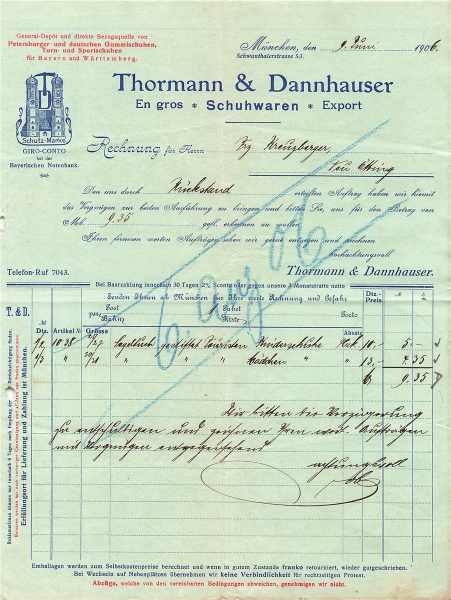 General-Depôt und direkte Bezugsquelle von
Petersburger und deutschen Gummischuhen,
Turn- und Sportschuhen
für Bayern und Württemberg.
München, den 9. Juni 1906.
Schwanthalerstrasse 53.
Thormann & Dannhauser
En gros * Schuhwaren * Export
Schutz-Marke.
GIRO-CONTO
bei der
Bayerischen Notenbank.
Rechnung für Herrn Frz Kreuzberger,
Neu Ötting
Den uns durch Rückstand erteilten Auftrag haben wir hiemit
das Vergnügen zur besten Ausführung zu bringen und bitten Sie, uns für den Betrag von
Mk. 9,35 gefl. erkennen zu wollen.
Ihren ferneren werten Aufträgen sehen wir gerne entgegen und zeichnen
hochachtungsvoll
Telefon-Ruf 7043.
Thormann & Dannhauser.
Bei Baarzahlung innerhalb 30 Tagen 2% Sconto oder gegen unsere 3 Monatstratte netto
T. & D.
Senden Ihnen ab München für Ihre werte Rechnung und Gefahr
Dtz.-Preis
M.
per Post Paket
Bahn Kiste
Porto
Dtz. Artikel № Grösse
Absatz
10.- 5.-
" " " Mädchen " 13.- 4.35
6 9.35
Wir bitten die Verzögerung
zu entschuldigen und zeichnen Ihren wert. Aufträgen
mit Vergnügen entgegensehend
achtungsvoll
6. Aug 06
Reklamationen können nur innerhalb 6 Tagen nach Empfang der
Erfüllungsort für Lieferung und Zahlung ist München.
Emballagen werden zum Selbstkostenpreise berechnet und wenn in gutem Zustande franko retourniert, wieder gutgeschrieben.
Bei Wechseln auf Nebenplätzen übernehmen wir keine Verbindlichkeit für rechtzeitigen Protest.
Abzüge, welche von den vereinbarten Bedingungen abweichen, genehmigen wir nicht.